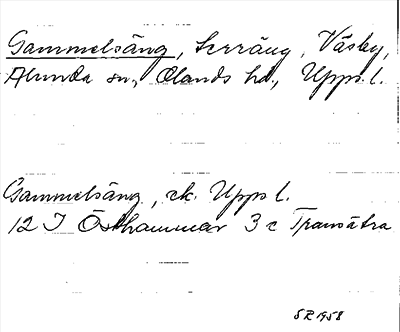 Gammelsäng, Serräng, Väsby,
Alunda sn., Olands hd., Upps. l.
Gammelsäng, ek. Upps l.
12 I Östhammar 3 c Transätra
SR 1958